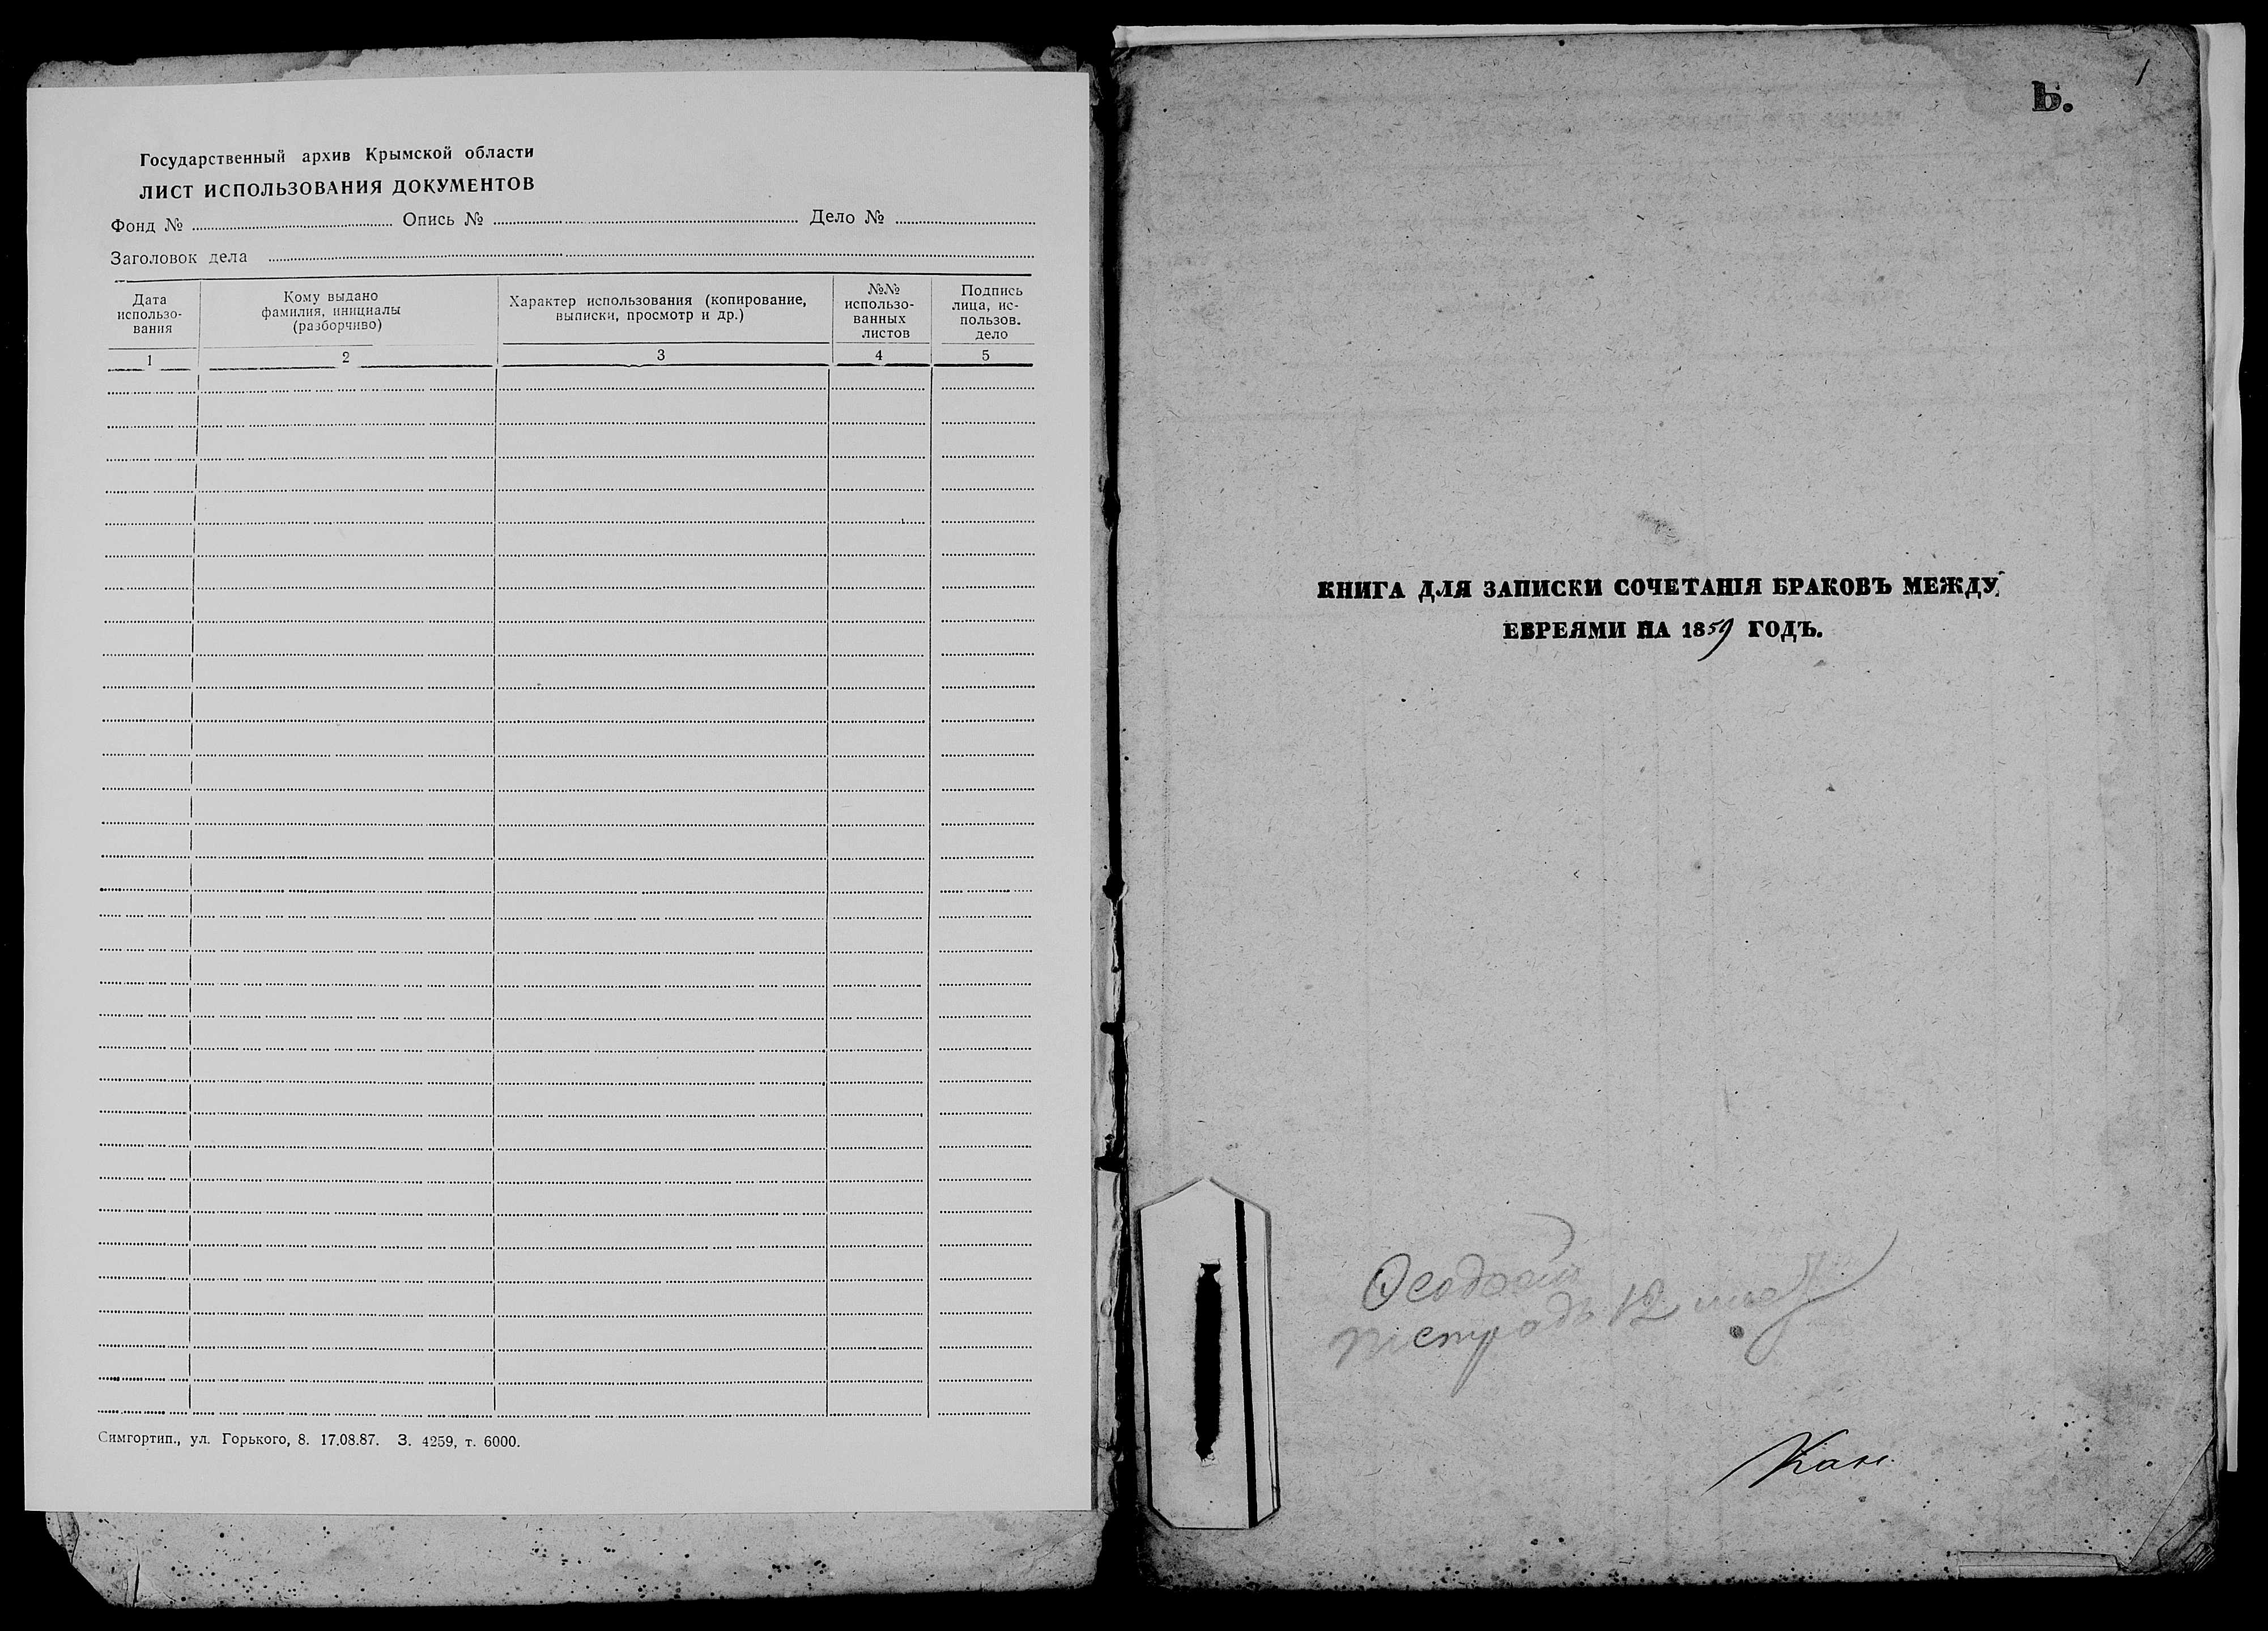 Государственный архив Крымской области
ЛИСТ ИСПОЛЬЗОВАНИЯ ДОКУМЕНТОВ
Фонд № Опись № Дело №
Заголовок дела
Дата использо-вания
Кому выдано фамилия, инициалы (разборчиво)
Характер использования (копирование, выписки, просмотр и др.)
№№ использо-ванных листов
Подпись лица, ис-пользов. дело
1 2 3 4 5
Симгортип., ул. Горького, 8. 17.08.87. З. 4259, т. 6000.
1
Ь.
КНИГА ДЛЯ ЗАПИСКИ СОЧЕТАНІЯ БРАКОВЪ МЕЖДУ
ЕВРЕЯМИ НА 1859 ГОДЪ.
12